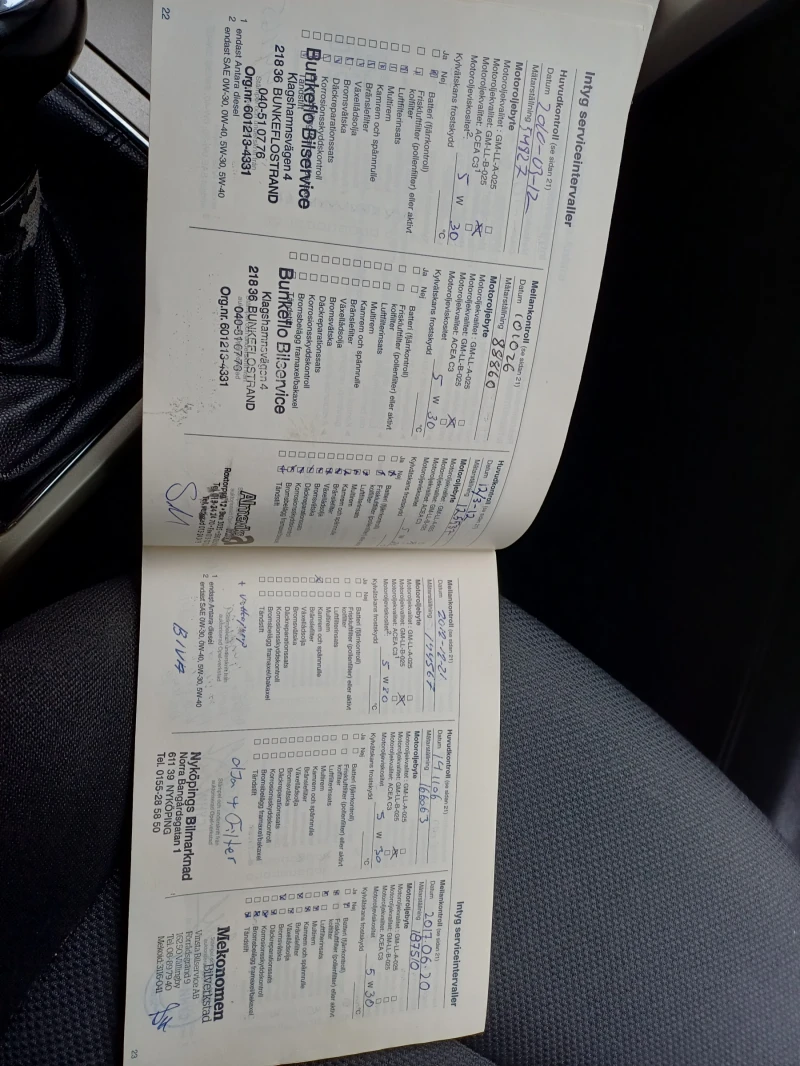 Intyg serviceintervaller
Huvudkontroll (se sidan 21)
Datum 2010-03-12
Mätarställning 54927
Motoroljebyte
Motoroljekvalitet: GM-LL-A-025
Motoroljekvalitet: GM-LL-B-025
Motoroljekvalitet: ACEA C3¹
Motoroljeviskositet² 5 W 30
Kylvätskans frostskydd °C
Ja Nej
Batteri (fjärrkontroll)
Friskluftfilter (pollenfilter) eller aktivt
kolfilter
Luftfilterinsats
Multirem
Kamrem och spännrulle
Bränslefilter
Växellådsolja
Bromsvätska
Däckreparationssats
Korrosionsskyddskontroll
Tändstift
Bunkeflo Bilservice
Klagshamnsvägen 4
218 36 BUNKEFLOSTRAND
040-51 07 76
Org.nr. 601213-4331
1 endast Antara diesel
2 endast SAE 0W-30, 0W-40, 5W-30, 5W-40
22
Mellankontroll (se sidan 21)
Datum 101026
Mätarställning 88860
Motoroljebyte
Motoroljekvalitet: GM-LL-A-025
Motoroljekvalitet: GM-LL-B-025
Motoroljekvalitet: ACEA C3
Motoroljeviskositet 5 W 30
Kylvätskans frostskydd °C
Ja Nej
Batteri (fjärrkontroll)
Friskluftfilter (pollenfilter) eller aktivt
kolfilter
Luftfilterinsats
Multirem
Kamrem och spännrulle
Bränslefilter
Växellådsolja
Bromsvätska
Däckreparationssats
Korrosionsskyddskontroll
Bromsbelägg framaxel/bakaxel
Tändstift
Bunkeflo Bilservice
Klagshamnsvägen 4
218 36 BUNKEFLOSTRAND
040-51 07 76
Org.nr. 601213-4331
Huvudkontroll (se sidan 21)
Datum 12/3-12
Mätarställning
Motoroljebyte
Motoroljekvalitet: GM-LL-A-025
Motoroljekvalitet: GM-LL-B-025
Motoroljekvalitet: ACEA C3
Motoroljeviskositet
Kylvätskans frostskydd
Ja Nej
Batteri
kolfilter
Luftfilterinsats
Multirem
Kamrem och
Bränslefilter
Växellådsolja
Bromsvätska
Däckreparationssats
Bromsbelägg
Tändstift
Mellankontroll (se sidan 21)
Datum 2012-11-21
Mätarställning 144567
Motoroljebyte
Motoroljekvalitet: GM-LL-A-025
Motoroljekvalitet: GM-LL-B-025
Motoroljekvalitet: ACEA C3¹
Motoroljeviskositet² 5 W 20
Kylvätskans frostskydd °C
Ja Nej
Batteri (fjärrkontroll)
Friskluftfilter (pollenfilter) eller aktivt
kolfilter
Luftfilterinsats
Multirem
Kamrem och spännrulle
Bränslefilter
Växellådsolja
Bromsvätska
Däckreparationssats
Korrosionsskyddskontroll
Bromsbelägg framaxel/bakaxel
Tändstift
1 endast Antara diesel
2 endast SAE 0W-30, 0W-40, 5W-30, 5W-40
Huvudkontroll (se sidan 21)
Datum 141106
Mätarställning 166063
Motoroljebyte
Motoroljekvalitet: GM-LL-A-025
Motoroljekvalitet: GM-LL-B-025
Motoroljekvalitet: ACEA C3
Motoroljeviskositet 5 W 30
Kylvätskans frostskydd °C
Ja Nej
Batteri (fjärrkontroll)
Friskluftfilter (pollenfilter) eller aktivt
kolfilter
Luftfilterinsats
Multirem
Kamrem och spännrulle
Bränslefilter
Växellådsolja
Bromsvätska
Däckreparationssats
Korrosionsskyddskontroll
Bromsbelägg framaxel/bakaxel
Tändstift
Olja + Filter
Nyköpings Bilmarknad
Norra Bangårdsgatan 1
611 39 NYKÖPING
Tel. 0155-28 58 50
Intyg serviceintervaller
Mellankontroll (se sidan 21)
Datum 2017.06.20
Mätarställning 187510
Motoroljebyte
Motoroljekvalitet: GM-LL-A-025
Motoroljekvalitet: GM-LL-B-025
Motoroljekvalitet: ACEA C3
Motoroljeviskositet 5 W 30
Kylvätskans frostskydd °C
Ja Nej
Batteri (fjärrkontroll)
Friskluftfilter (pollenfilter) eller aktivt
kolfilter
Luftfilterinsats
Multirem
Kamrem och spännrulle
Bränslefilter
Växellådsolja
Bromsvätska
Däckreparationssats
Korrosionsskyddskontroll
Bromsbelägg framaxel/bakaxel
Tändstift
Mekonomen
Bilverkstad
Vinsta Bilservice AB
162 50 Vällingby
23